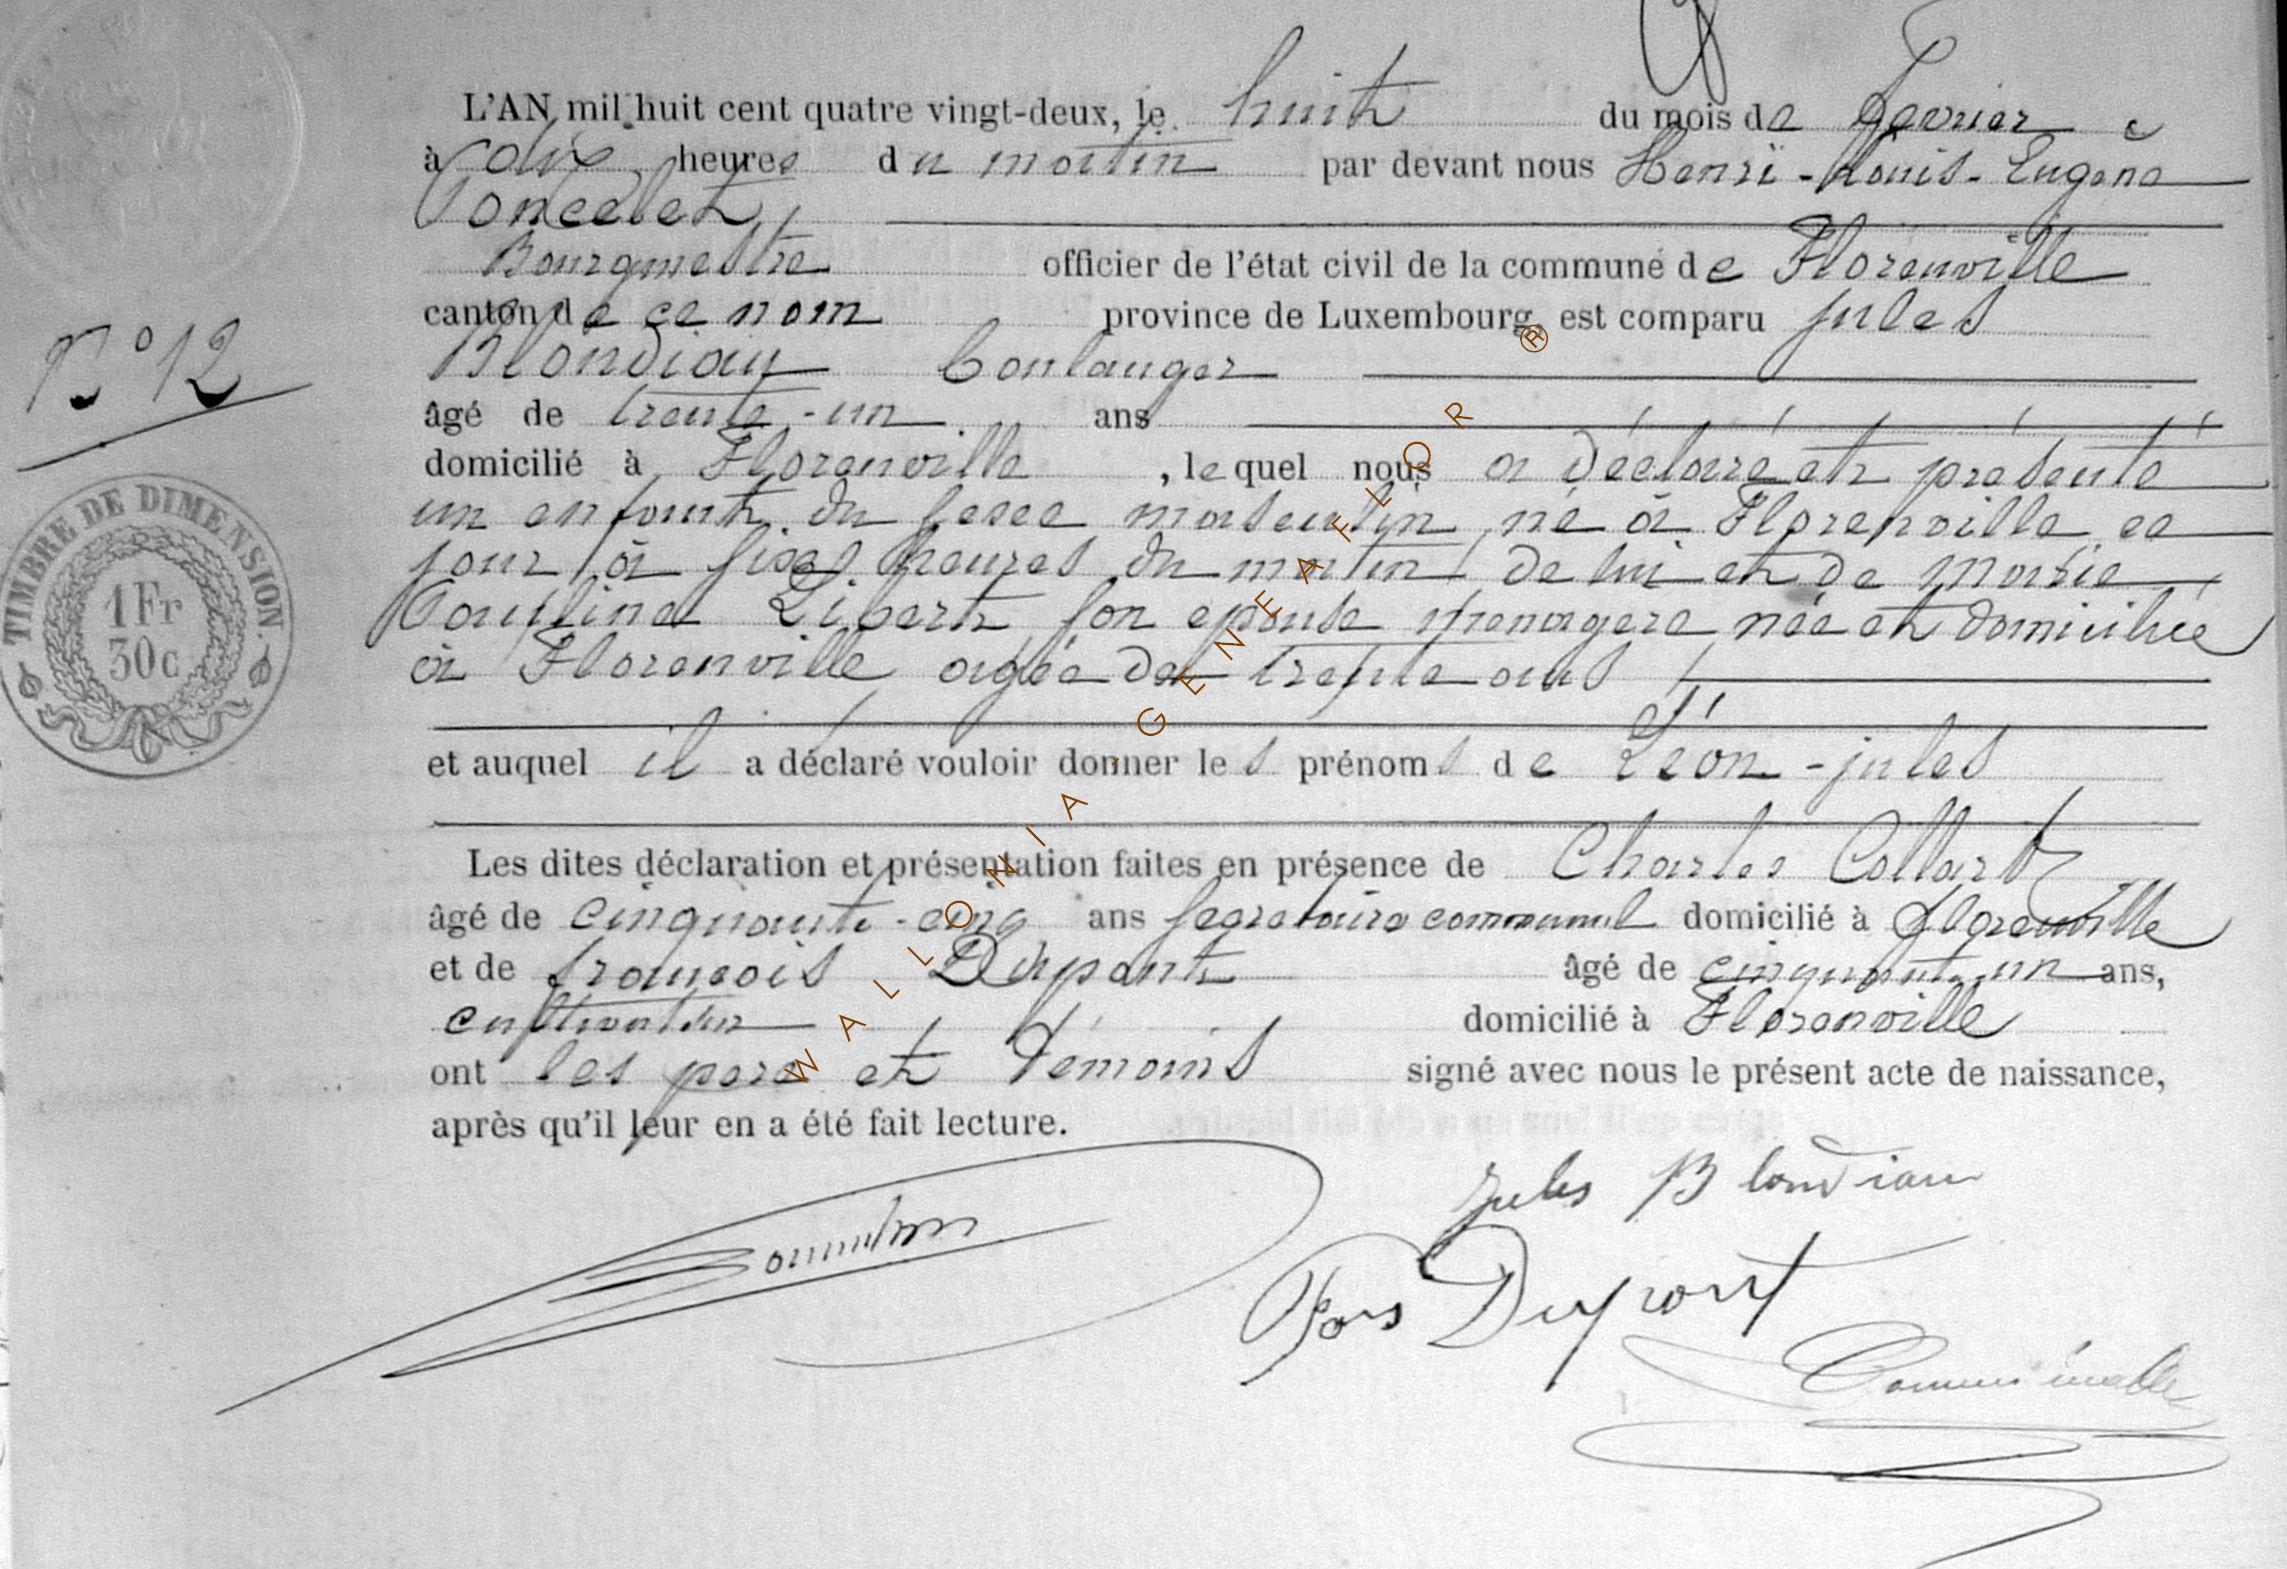 L'AN mil huit cent quatre vingt-deux, le huit du mois de Fevrier
à dix heures du matin par devant nous Henri-Louis-Eugene
Poncelet
Bourgmestre officier de l'état civil de la commune de Florenville
canton de ce nom province de Luxembourg, est comparu jules
Blondiau boulanger
N° 12
âgé de trente-un ans
domicilié à Florenville, lequel nous a déclaré et présenté
un enfant du sexe masculin né à Florenville ce
jour à six heures du matin de lui et de Marie
Pauline Libert son epouse menagere née et domiciliée
à Florenville agée de trente ans
TIMBRE DE DIMENSION.
1 Fr
30c
et auquel il a déclaré vouloir donner les prénoms de Léon-jules
Les dites déclaration et présentation faites en présence de Charles Collart
âgé de cinquante-cinq ans secretaire communal domicilié à florenville
et de françois Dupont âgé de cinquante-un ans,
cultivateur domicilié à Florenville
ont les pere et témoins signé avec nous le présent acte de naissance,
après qu'il leur en a été fait lecture.
Jules Blondiau
Fois Dupont
WALLONIA GENEAFLOR ®